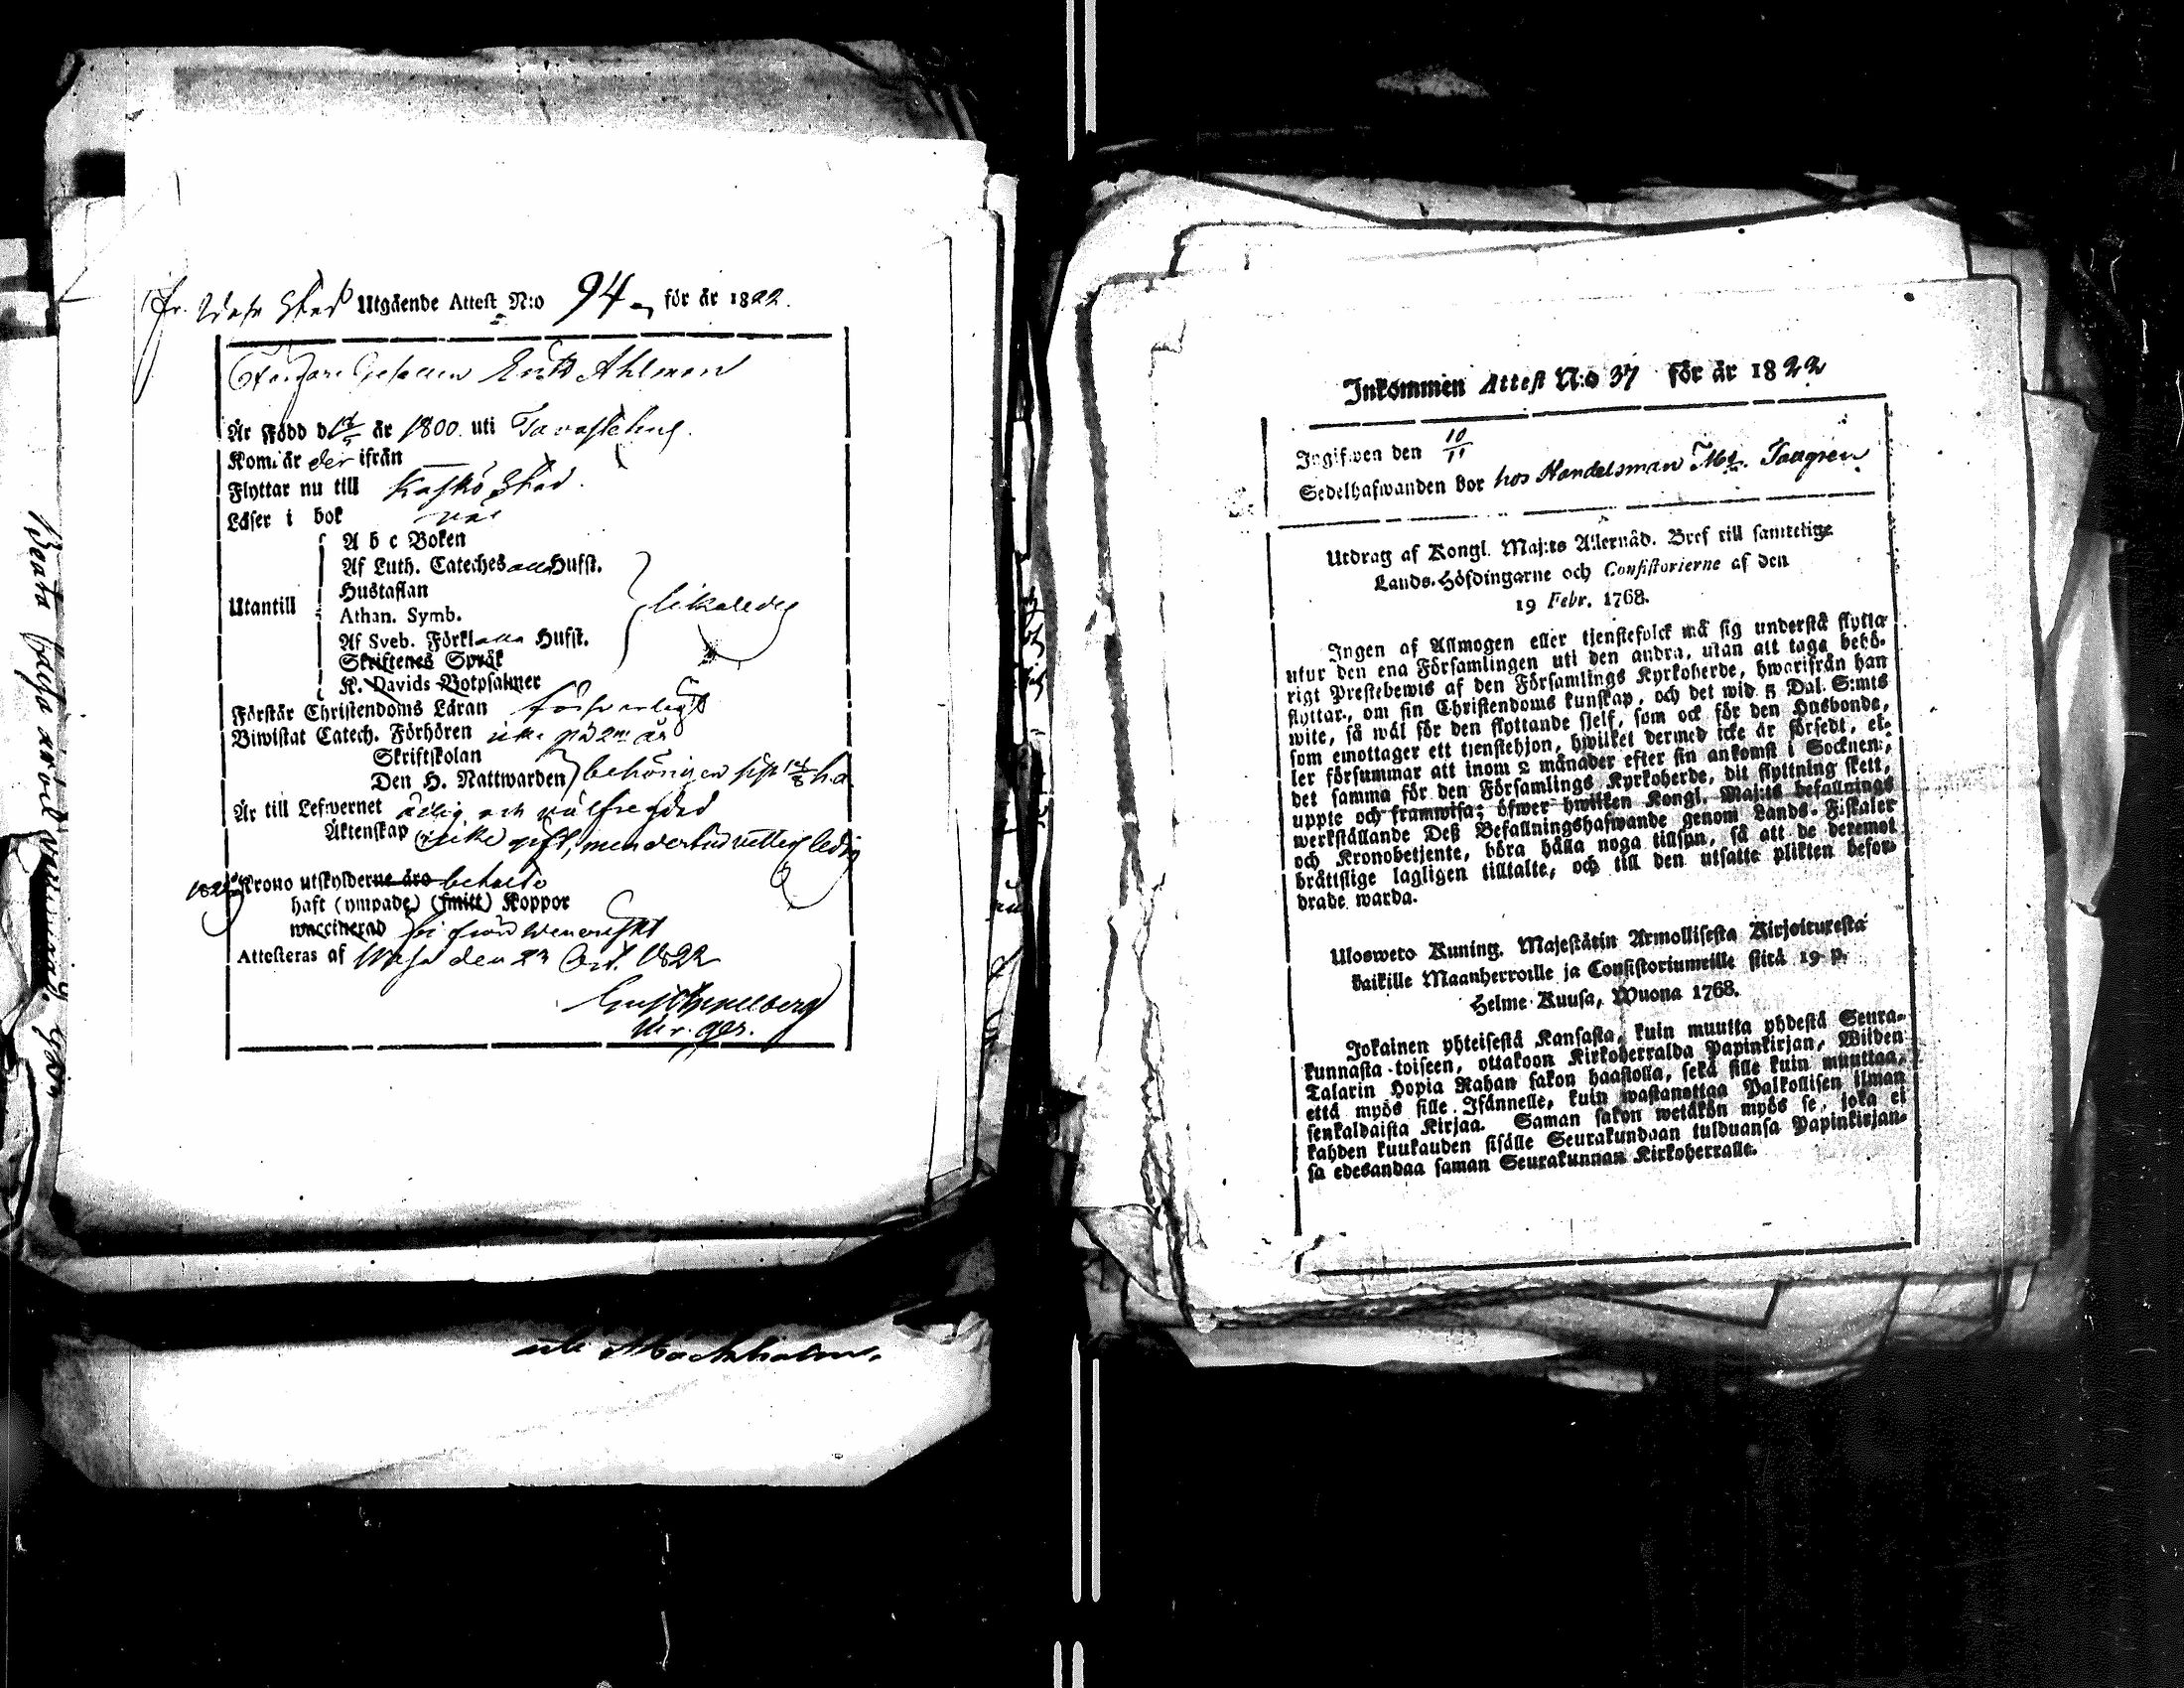 fr. Wasa Stad Utgående Attest N:o 94 för år 1822.
Gesällen Erik Ahlman
Är Född d år 1800. uti Tavastehus.
Kom: är der ifrån
Flyttar nu till Kaskö Stad.
Läser i bok väl
A b c Boken
Af Luth. Cateches alla Hufst.
Hustaflan
Utantill
Athan. Symb.
likaledes
Af Sveb. Förkl alla Hufst.
Skriftenes Språk
K. Davids Botpsalmer
Förstår Christendoms Läran försvarligt
Biwistat Catech. Förhören icke på 2ne år
Skriftskolan
Den H. Nattwarden behörigen sist
Är till Lefwernet ärlig och välfrejdad
Äktenskap icke gift, men ledig
Krono utskylderne äro betalte
haft (ympade) (smitt) Koppor
waccinerad fri från
Attesteras af Wasa den 23 Oct. 1822
Beata
uti
Inkommen Attest N:o 37 för år 1822
Ingifwen den 10/11
Sedelhafwanden bor hos Handelsman
Utdrag af Kongl. Maj:ts Allernåd. Bref till samtelige
Lands-Höfdingarne och Consistorierne af den
19 Febr. 1768.
Ingen af Allmogen eller tjenstefolck må sig understå flytta
utur den ena Församlingen uti den andra, utan att taga behö-
rigt Prestebewis af den Församlings Kyrkoherde, hwarifrån han
flyttar, om sin Christendoms kunskap, och det wid 5 Dal. S:mts
wite, så wäl för den flyttande sjelf, som ock för den Husbonde,
som emottager ett tjenstehjon, hwilket dermed icke är försedt, el-
ler försummar att inom 2 månader efter sin ankomst i Socknen,
det samma för den Församlings Kyrkoherde, dit flyttning skett,
uppte och framwisa; öfwer hwilken Kongl. Maj:ts befallnings
werkställande Deß Befallningshafwande genom Lands-Fiskaler
och Kronobetjente, böra hålla noga tillsyn, så att de deremot
bråttslige lagligen tilltalte, och till den utsatte plikten befor-
drade warda.
Ulosweto Kuning. Majestätin Armollisesta Kirjoituxesta
kaikille Maanherroille ja Consistoriumeille siitä 19 p.
Helme Kuusa, Wuona 1768.
Jokainen yhteisestä Kansasta, kuin muutta yhdestä Seura-
kunnasta toiseen, ottakoon Kirkoherralda Papinkirjan, Wiiden
Talarin Hopia Rahan sakon haastolla, sekä sille kuin muuttaa,
että myös sille Isännelle, kuin wastanottaa Palkollisen ilman
senkaldaista Kirjaa. Saman sakon wetäkön myös se, joka ei
kahden kuukauden sisälle Seurakundaan tulduansa Papinkirjan-
sa edesandaa saman Seurakunnan Kirkoherralle.